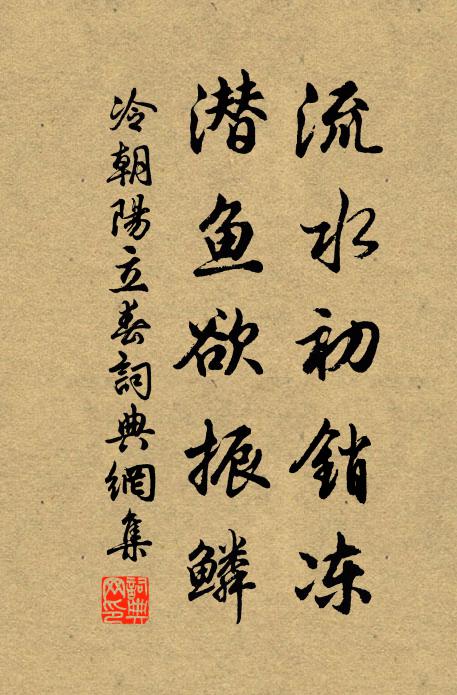 流水初销冻
潜鱼欲振鳞
冷朝陽立春詞典網集
詞典
网印